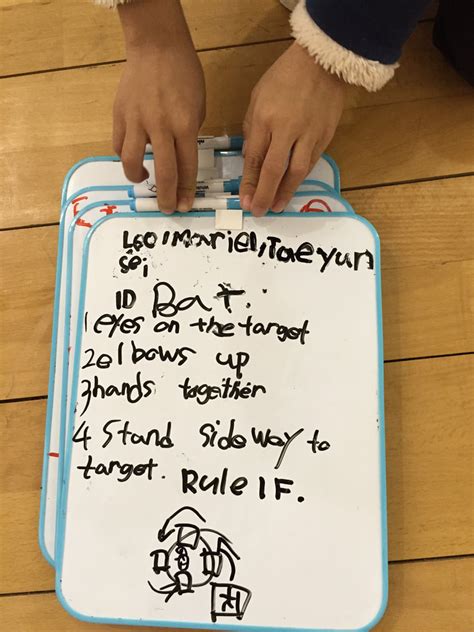 Leo, Mariel, Taeyun
Sei
ID Bat.
1 eyes on the target
2 elbows up
3 hands together
4 Stand side way to
target. Rule IF.